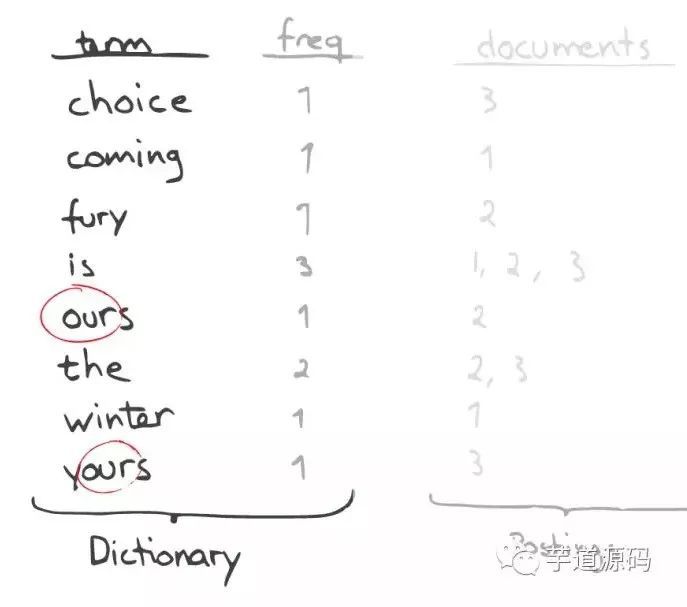 term freq documents
choice 1 3
coming 1 1
fury 1 2
is 3 1, 2, 3
ours 1 2
the 2 2, 3
winter 1 1
yours 1 3
Dictionary 芋道源码